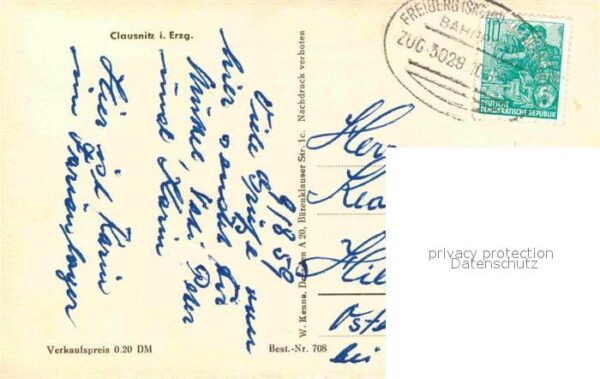 Clausnitz i. Erzg.
9.8.59.
Viele Grüße von
hier sendet Dir
Michel, Vati Peter
und Karin
Hier ist Karin
im Ferienlager
Verkaufspreis 0.20 DM
Best.-Nr. 708
W. Kenne, Dresden A 20, Bärenklauser Str. 1c. Nachdruck verboten
FREIBERG (SACHS)
BAHNPOST
ZUG 3029
10
DEUTSCHE
DEMOKRATISCHE REPUBLIK
Herr
Kla
Hil
Osts
bei
privacy protection
Datenschutz